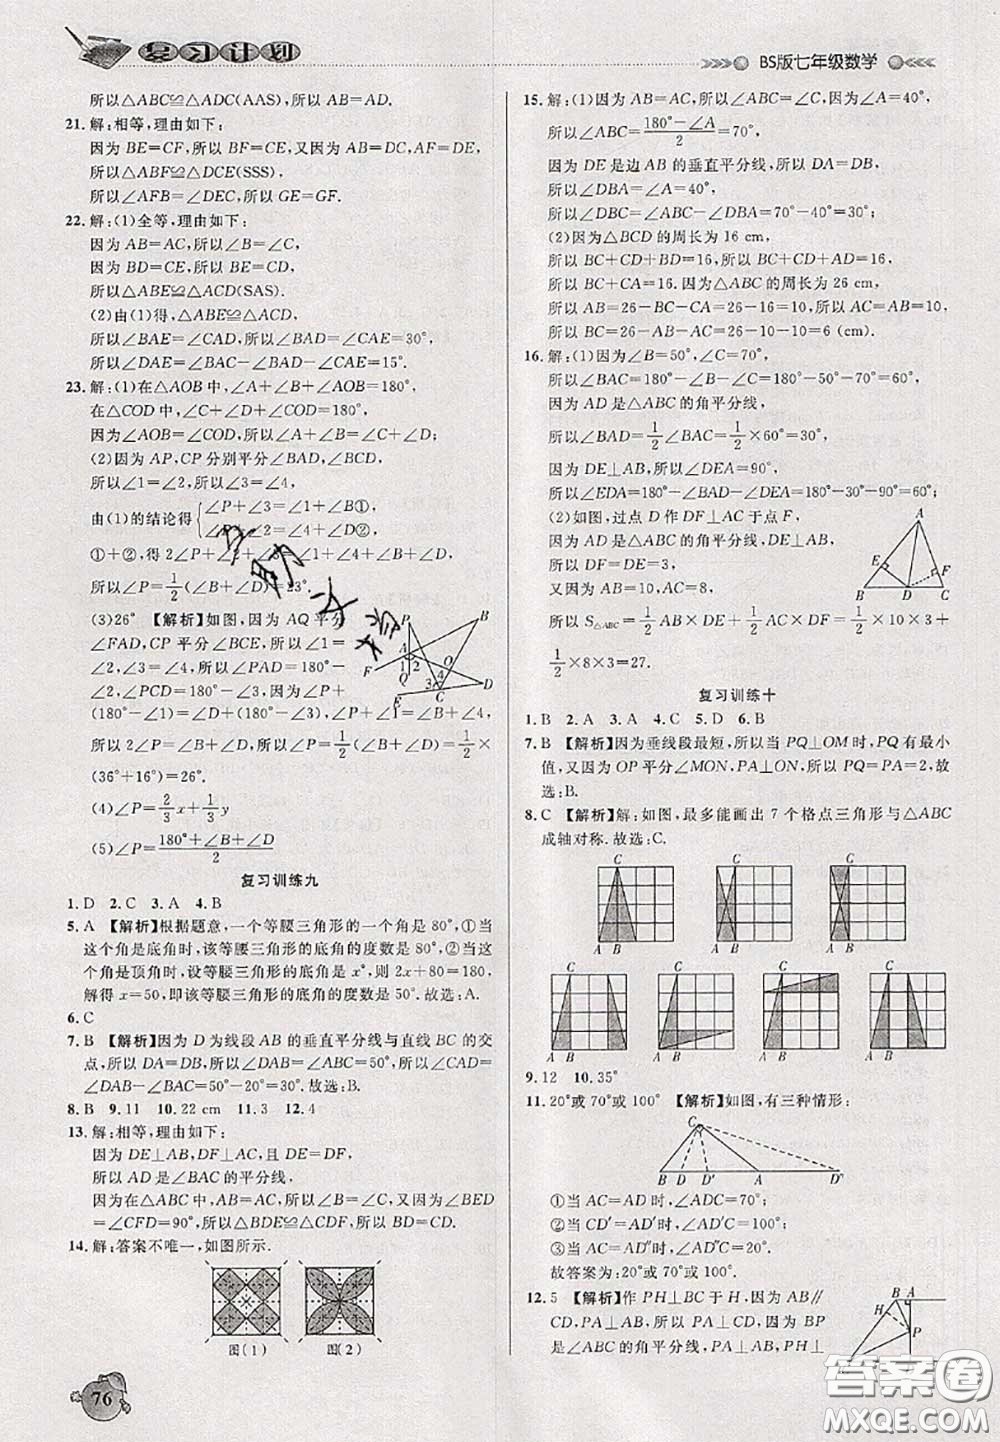 复习计划
BS版七年级数学
所以△ABC≌△ADC(AAS),所以AB=AD.
21.解:相等,理由如下:
因为BE=CF,所以BF=CE,又因为AB=DC,AF=DE,
所以△ABF≌△DCE(SSS),
所以∠AFB=∠DEC,所以GE=GF.
22.解:(1)全等,理由如下:
因为AB=AC,所以∠B=∠C,
因为BD=CE,所以BE=CD,
所以△ABE≌△ACD(SAS).
(2)由(1)得,△ABE≌△ACD,
所以∠BAE=∠CAD,所以∠BAD=∠CAE=30°,
所以∠DAE=∠BAC-∠BAD-∠CAE=15°.
23.解:(1)在△AOB中,∠A+∠B+∠AOB=180°,
在△COD中,∠C+∠D+∠COD=180°,
因为∠AOB=∠COD,所以∠A+∠B=∠C+∠D;
(2)因为AP,CP分别平分∠BAD,∠BCD,
所以∠1=∠2,所以∠3=∠4,
由(1)的结论得{∠P+∠3=∠1+∠B①,
∠P+∠2=∠4+∠D②,
①+②,得2∠P+∠2+∠3=∠1+∠4+∠B+∠D,
所以∠P=1/2(∠B+∠D)=23°.
(3)26° 【解析】如图,因为AQ平分
∠FAD,CP平分∠BCE,所以∠1=
∠2,∠3=∠4,所以∠PAD=180°-
∠2,∠PCD=180°-∠3,因为∠P+
(180°-∠1)=∠D+(180°-∠3),∠P+∠1=∠B+∠4,
所以2∠P=∠B+∠D,所以∠P=1/2(∠B+∠D)=1/2×
(36°+16°)=26°.
(4)∠P=2/3x+1/3y
(5)∠P=180°+∠B+∠D/2
P B A O F 1 2 Q 3 4 D E C
复习训练九
1.D 2.C 3.A 4.B
5.A 【解析】根据题意,一个等腰三角形的一个角是80°,①当
这个角是底角时,该等腰三角形的底角的度数是80°,②当这
个角是顶角时,设等腰三角形的底角是x°,则2x+80=180,
解得x=50,即该等腰三角形的底角的度数是50°.故选:A.
6.C
7.B 【解析】因为D为线段AB的垂直平分线与直线BC的交
点,所以DA=DB,所以∠DAB=∠ABC=50°,所以∠CAD=
∠DAB-∠BAC=50°-20°=30°.故选:B.
8.B 9.11 10.22 cm 11.3 12.4
13.解:相等,理由如下:
因为DE⊥AB,DF⊥AC且DE=DF,
所以AD是∠BAC的平分线,
因为在△ABC中,AB=AC,所以∠B=∠C,又因为∠BED
=∠CFD=90°,所以△BDE≌△CDF,所以BD=CD.
14.解:答案不唯一,如图所示.
图(1) 图(2)
76
15.解:(1)因为AB=AC,所以∠ABC=∠C,因为∠A=40°,
所以∠ABC=180°-∠A/2=70°,
因为DE是边AB的垂直平分线,所以DA=DB,
所以∠DBA=∠A=40°,
所以∠DBC=∠ABC-∠DBA=70°-40°=30°;
(2)因为△BCD的周长为16 cm,
所以BC+CD+BD=16,所以BC+CD+AD=16,
所以BC+CA=16.因为△ABC的周长为26 cm,
所以AB=26-BC-CA=26-16=10,所以AC=AB=10,
所以BC=26-AB-AC=26-10-10=6 (cm).
16.解:(1)因为∠B=50°,∠C=70°,
所以∠BAC=180°-∠B-∠C=180°-50°-70°=60°,
因为AD是△ABC的角平分线,
所以∠BAD=1/2∠BAC=1/2×60°=30°,
因为DE⊥AB,所以∠DEA=90°,
所以∠EDA=180°-∠BAD-∠DEA=180°-30°-90°=60°;
(2)如图,过点D作DF⊥AC于点F,
因为AD是△ABC的角平分线,DE⊥AB,
所以DF=DE=3,
又因为AB=10,AC=8,
所以S△ABC=1/2×AB×DE+1/2×AC×DF=1/2×10×3+
1/2×8×3=27.
A E F B D C
复习训练十
1.B 2.A 3.A 4.C 5.D 6.B
7.B 【解析】因为垂线段最短,所以当PQ⊥OM时,PQ有最小
值,又因为OP平分∠MON,PA⊥ON,所以PQ=PA=2,故
选:B.
8.C 【解析】解:如图,最多能画出7个格点三角形与△ABC
成轴对称.故选:C.
C C C
A B A B A B
C C C C
A B A B A B A B
9.12 10.35°
11.20°或70°或100° 【解析】如图,有三种情形:
C
B D D′ A D″
①当AC=AD时,∠ADC=70°;
②当CD′=AD′时,∠AD′C=100°;
③当AC=AD″时,∠AD″C=20°.
故答案为:20°或70°或100°.
12.5 【解析】作PH⊥BC于H,因为AB∥
CD,PA⊥AB,所以PD⊥CD,因为BP
是∠ABC的角平分线,PA⊥AB,PH⊥
B A H P
答案圈
MXQE.COM